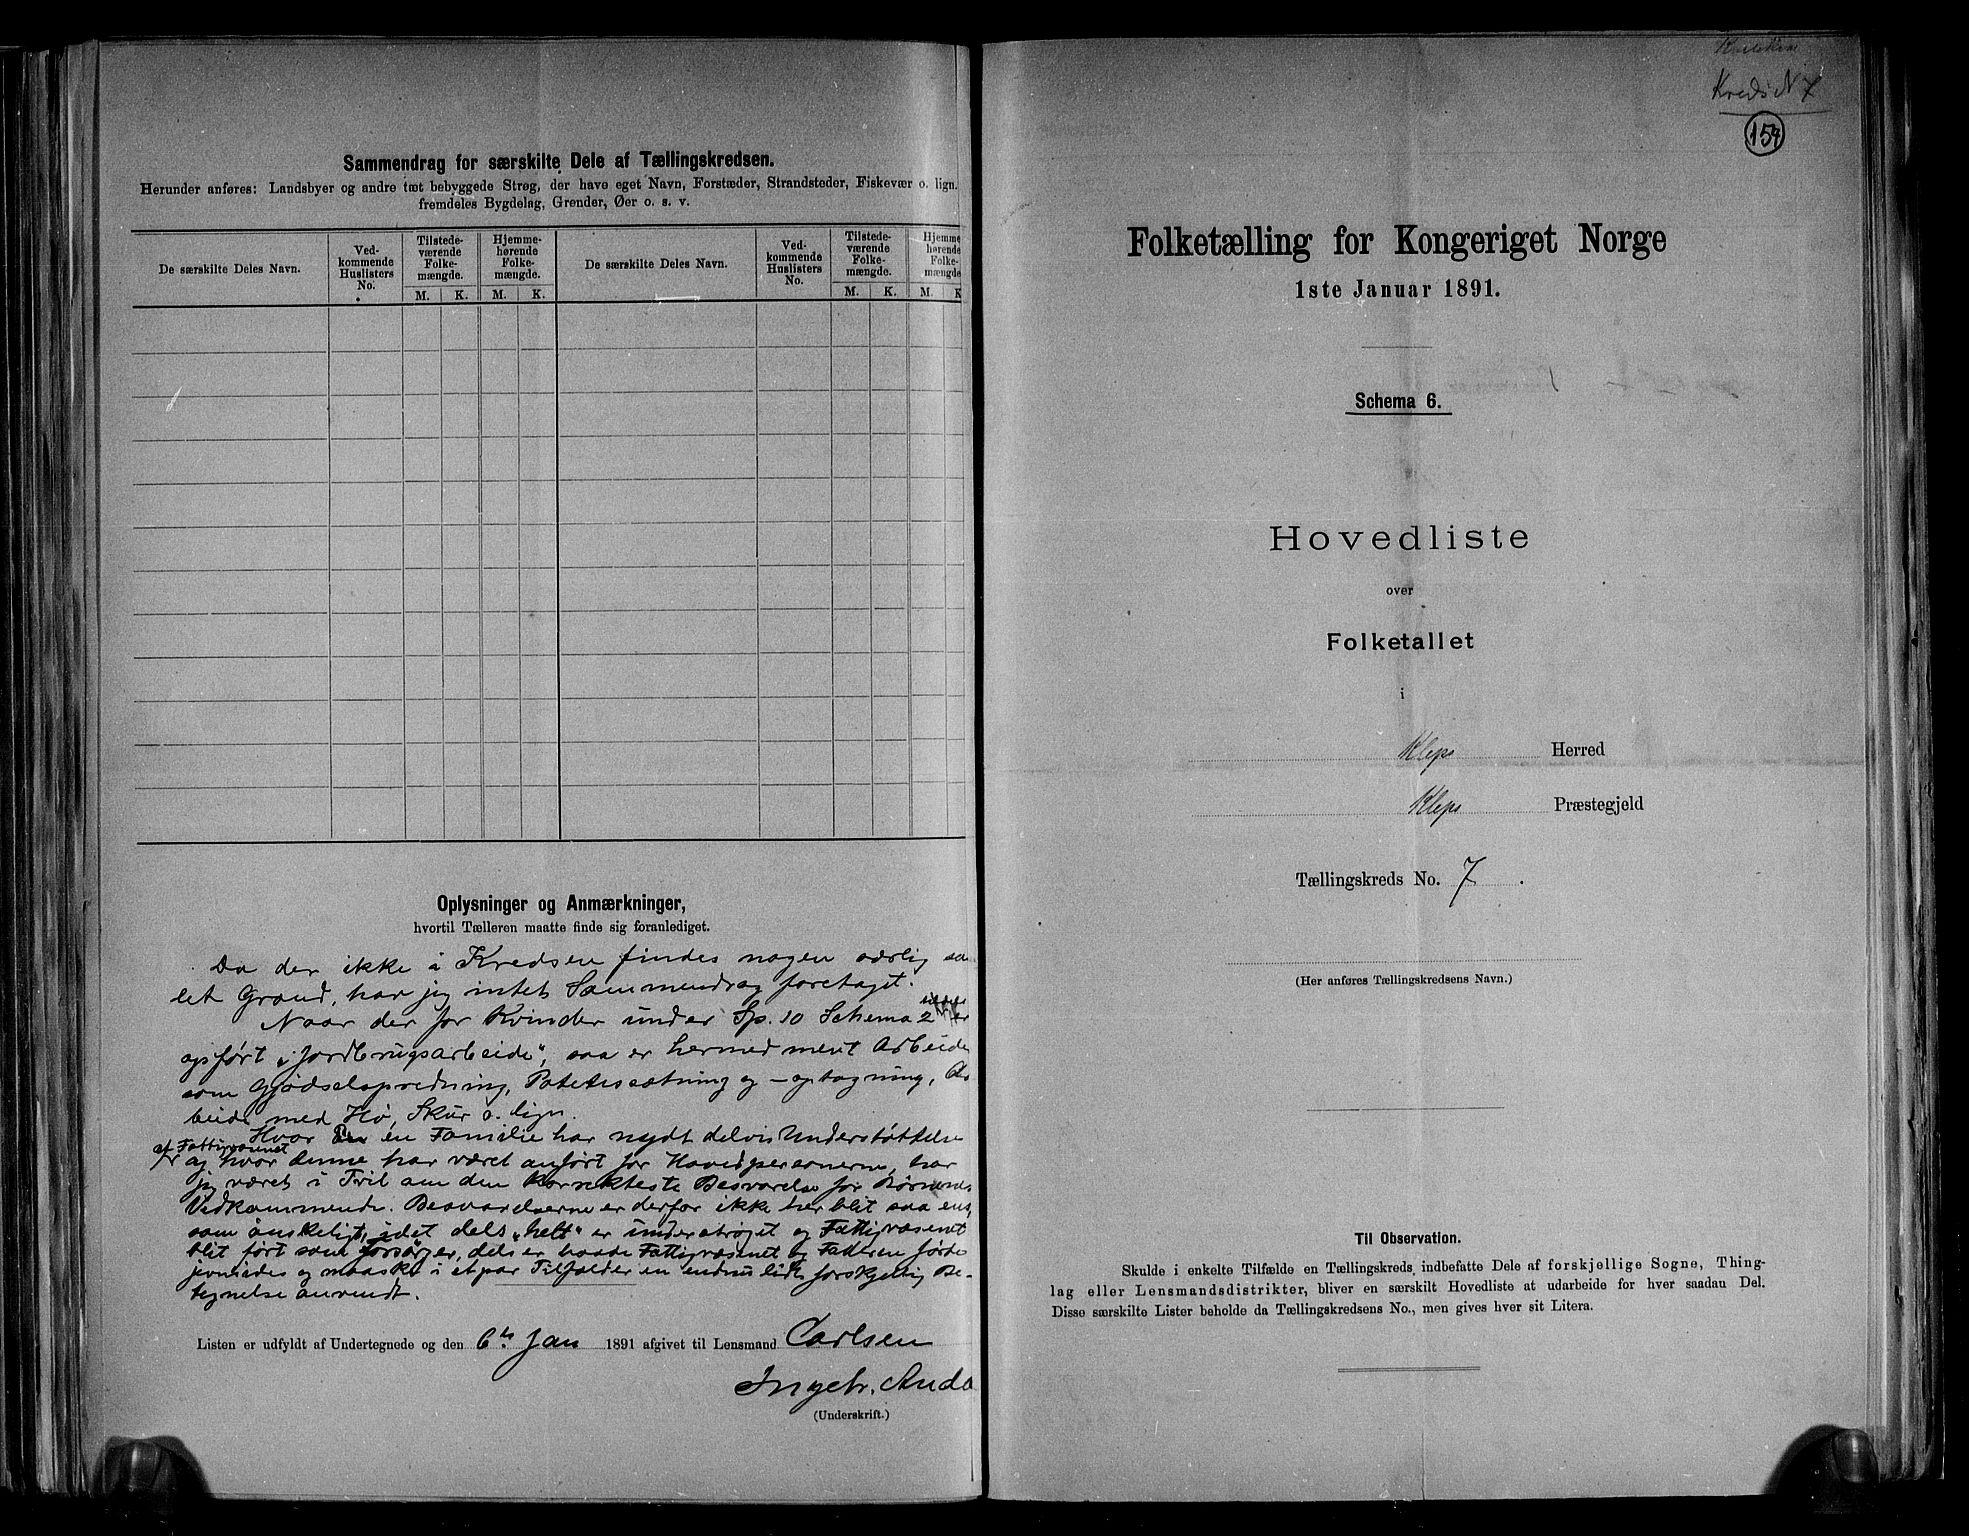 Sammendrag for særskilte Dele af Tællingskredsen.
Herunder anføres: Landsbyer og andre tæt bebyggede Strøg, der have eget Navn, Forstæder, Strandsteder, Fiskevær o. lign.
fremdeles Bygdelag, Grender, Øer o. s. v.
De særskilte Deles Navn.
Ved-
kommende
Huslisters
No.
Tilstede-
værende
Folke-
mængde.
M. K.
Hjemme-
hørende
Folke-
mængde.
M. K.
De særskilte Deles Navn.
Ved-
kommende
Huslisters
No.
Tilstede-
værende
Folke-
mængde.
M. K.
Hjemme
hørende
Folke-
mængde
M. K
Oplysninger og Anmærkninger,
hvortil Tælleren maatte finde sig foranlediget.
Da der ikke i Kredsen findes nogen særlig
Grænd, har jeg intet Sammendrag foretaget.
Naar der for Kvinder under Sp. 10 Schema 2 er
opført „Jordbrugsarbeide", saa er hermed ment Arbeide
som Gjødselspredning, Potetessætning og -optagning,
beide med Hø, Skur o. lign.
Hvor en Familie har nydt delvis Understøttelse
af Fattigvæsenet
og hvor denne har været anført for Hovedpersonerne, har
jeg været i Tvil om den korrekteste Besvarelse for Børnenes
Vedkommende. Besvarelserne er derfor ikke her blit saa ens,
som ønskeligt, idet dels „helt" er understrøget og Fattigvæsenet
blit ført som Forsørger, dels er baade Fattigvæsenet og Faderen
jevnsides og maaske i et par Tilfælder en endnu lidt forskjellig Be-
tegnelse anvendt.
Listen er udfyldt af Undertegnede og den 6te Jan 1891 afgivet til Lensmand Carlsen
Ingebr. Anda
(Underskrift.)
Kreds N 7
154
Folketælling for Kongeriget Norge
1ste Januar 1891.
Schema 6.
Hovedliste
over
Folketallet
i
Klep Herred
Klep Præstegjeld
Tællingskreds No. 7.
(Her anføres Tællingskredsens Navn.)
Til Observation.
Skulde i enkelte Tilfælde en Tællingskreds indbefatte Dele af forskjellige Sogne, Thing-
lag eller Lensmandsdistrikter, bliver en særskilt Hovedliste at udarbeide for hver saadan Del.
Disse særskilte Lister beholde da Tællingskredsens No., men gives hver sit Litera.